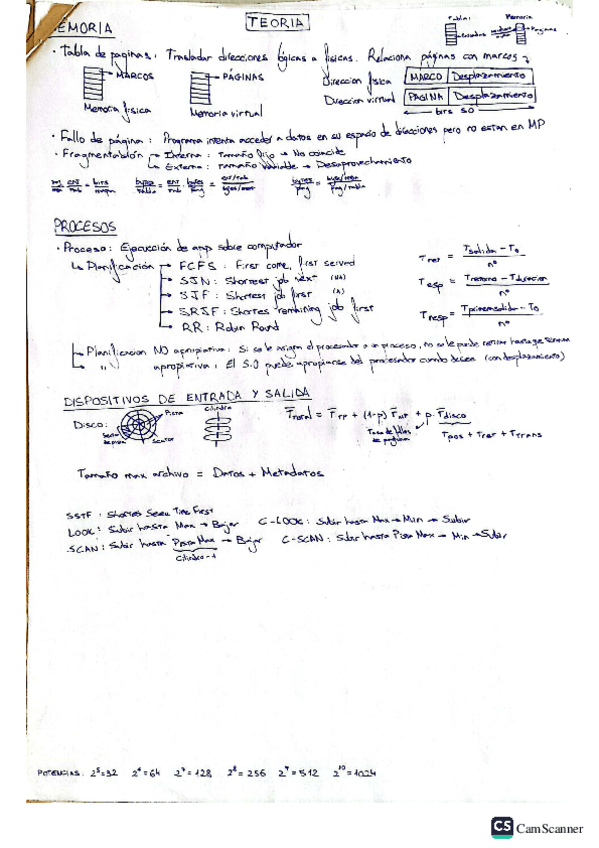 MEMORIA
TEORIA
Tabla: Memoria
Entradas Páginas
· Tabla de paginas: Trasladar direcciones lógicas a fisicas. Relaciona páginas con marcos
MARCOS
PÁGINAS
Memoria fisica
Memoria virtual
Direccion fisica MARCO Desplazamiento
Direccion virtual PAGINA Desplazamiento
bits SO
· Fallo de página: Programa intenta acceder a datos en su espacio de direcciones pero no estan en MP
· Fragmentación Interna: Tamaño fijo → No coincide
Externa: Tamaño variable → Desaprovechamiento
PROCESOS
· Proceso: Ejecucción de app sobre computador
Planificación
FCFS: First come, first served
SJN: Shortest job next (NA)
SJF: Shortest job first (A)
SRJF: Shortes remaining job first
RR: Robin Round
Tret = Tsalida - To / nº
Tesp = Tretorno - Tduracion / nº
Tresp = Tprimerasalida - To / nº
Planificacion NO apropiativa: Si se le asigna el procesador a un proceso, no se le puede retirar hasta que termine
" apropiativa: El S.O puede apropiarse del procesador cuando desee (con desplazamiento)
DISPOSITIVOS DE ENTRADA Y SALIDA
Disco:
Pista
Sector
Cilindro
Ttotal = Ttp + (1-p) Tat + p · Tdisco
Tasa de fallos de pagina
Tpos + Tlat + Ttrans
Tamaño max archivo = Datos + Metadatos
SSTF: Shortes Seek Time First
LOOK: Subir hasta Max → Bajar C-LOOK: Subir hasta Max → Min → Subir
SCAN: Subir hasta Pista Max → Bajar C-SCAN: Subir hasta Pista Max → Min → Subir
Cilindro-1
POTENCIAS: 2⁵=32 2⁶=64 2⁷=128 2⁸=256 2⁹=512 2¹⁰=1024
CS CamScanner